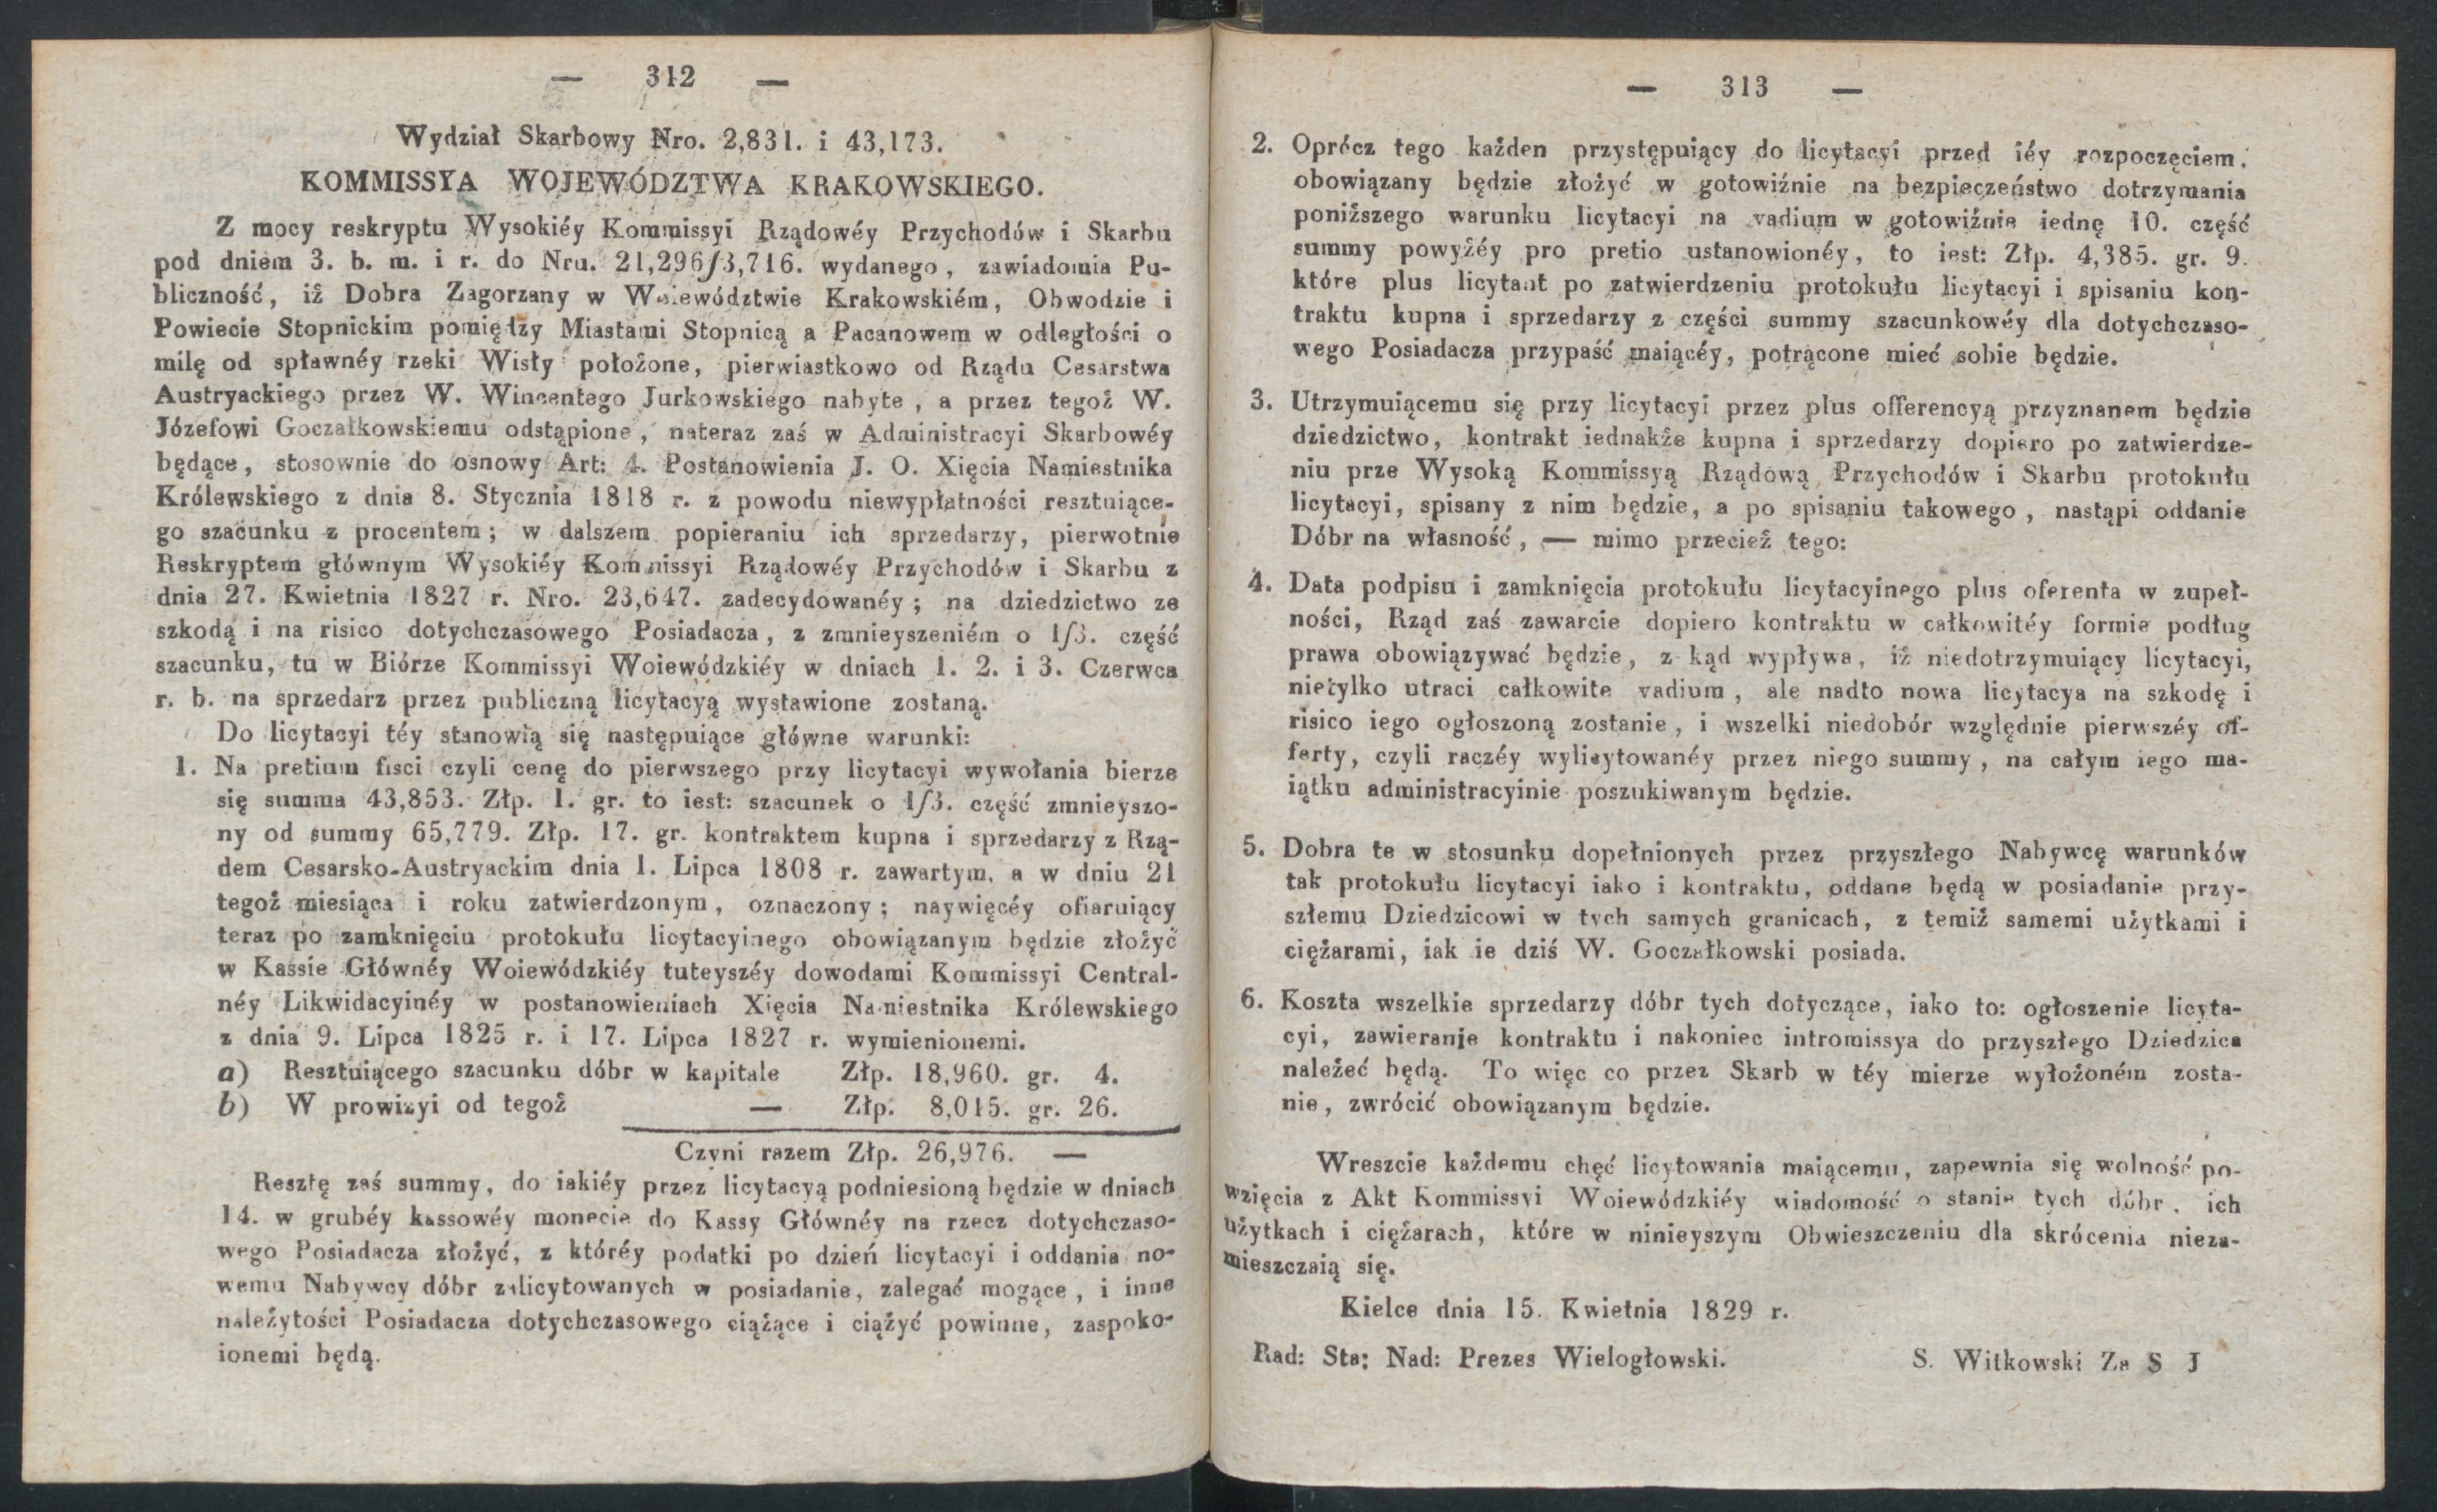 — 312 —
Wydział Skarbowy Nro. 2,831. i 43,173.
KOMMISSYA WOJEWÓDZTWA KRAKOWSKIEGO.
Z mocy reskryptu Wysokiéy Kommissyi Rządowéy Przychodów i Skarbu
pod dniem 3. b. m. i r. do Nru. 21,296/3,716. wydanego, zawiadomia Pu-
bliczność, iż Dobra Zagorzany w Woiewództwie Krakowskiém, Obwodzie i
Powiecie Stopnickim pomiędzy Miastami Stopnicą a Pacanowem w odległości o
milę od spławnéy rzeki Wisły położone, pierwiastkowo od Rządu Cesarstwa
Austryackiego przez W. Wincentego Jurkowskiego nabyte, a przez tegoż W.
Józefowi Goczałkowskiemu odstąpione, nateraz zaś w Administracyi Skarbowéy
będące, stosownie do osnowy Art: 4. Postanowienia J. O. Xięcia Namiestnika
Królewskiego z dnia 8. Stycznia 1818 r. z powodu niewypłatności resztuiące-
go szacunku z procentem; w dalszem popieraniu ich sprzedarzy, pierwotnie
Reskryptem głównym Wysokiéy Kommissyi Rządowéy Przychodów i Skarbu z
dnia 27. Kwietnia 1827 r. Nro. 23,647. zadecydowanéy; na dziedzictwo ze
szkodą i na risico dotychczasowego Posiadacza, z zmnieyszeniém o 1/3. część
szacunku, tu w Biórze Kommissyi Woiewódzkiéy w dniach 1. 2. i 3. Czerwca
r. b. na sprzedarz przez publiczną licytacyą wystawione zostaną.
Do licytacyi téy stanowią się następuiące główne warunki:
1. Na pretium fisci czyli cenę do pierwszego przy licytacyi wywołania bierze
się summa 43,853. Złp. 1. gr. to iest: szacunek o 1/3. część zmnieyszo-
ny od summy 65,779. Złp. 17. gr. kontraktem kupna i sprzedarzy z Rzą-
dem Cesarsko-Austryackim dnia 1. Lipca 1808 r. zawartym, a w dniu 21
tegoż miesiąca i roku zatwierdzonym, oznaczony; naywięcéy ofiaruiący
teraz po zamknięciu protokułu licytacyinego obowiązanym będzie złożyć
w Kassie Głównéy Woiewódzkiéy tuteyszéy dowodami Kommissyi Central-
néy Likwidacyinéy w postanowieniach Xięcia Namiestnika Królewskiego
z dnia 9. Lipca 1825 r. i 17. Lipca 1827 r. wymienionemi.
a) Resztuiącego szacunku dóbr w kapitale Złp. 18,960. gr. 4.
b) W prowizyi od tegoż — Złp. 8,015. gr. 26.
Czyni razem Złp. 26,976. —
Resztę zaś summy, do iakiéy przez licytacyą podniesioną będzie w dniach
14. w grubéy kassowéy monecie do Kassy Głównéy na rzecz dotychczaso-
wego Posiadacza złożyć, z któréy podatki po dzień licytacyi i oddania no-
wemu Nabywcy dóbr zalicytowanych w posiadanie, zalegać mogące, i inne
należytości Posiadacza dotychczasowego ciążące i ciążyć powinne, zaspoko-
ionemi będą.
— 313 —
2. Oprócz tego każden przystępuiący do licytacyi przed iéy rozpoczęciem,
obowiązany będzie złożyć w gotowiźnie na bezpieczeństwo dotrzymania
poniższego warunku licytacyi na vadium w gotowiźnie iednę 10. część
summy powyżéy pro pretio ustanowionéy, to iest: Złp. 4,385. gr. 9.
które plus licytant po zatwierdzeniu protokułu licytacyi i spisaniu kon-
traktu kupna i sprzedarzy z części summy szacunkowéy dla dotychczaso-
wego Posiadacza przypaść maiącéy, potrącone mieć sobie będzie.
3. Utrzymuiącemu się przy licytacyi przez plus offerencyą przyznanem będzie
dziedzictwo, kontrakt iednakże kupna i sprzedarzy dopiero po zatwierdze-
niu prze Wysoką Kommissyą Rządową Przychodów i Skarbu protokułu
licytacyi, spisany z nim będzie, a po spisaniu takowego, nastąpi oddanie
Dóbr na własność, — mimo przecież tego:
4. Data podpisu i zamknięcia protokułu licytacyinego plus oferenta w zupeł-
ności, Rząd zaś zawarcie dopiero kontraktu w całkowitéy formie podług
prawa obowiązywać będzie, z kąd wypływa, iż niedotrzymuiący licytacyi,
nietylko utraci całkowite vadium, ale nadto nowa licytacya na szkodę i
risico iego ogłoszoną zostanie, i wszelki niedobór względnie pierwszéy of-
ferty, czyli raczéy wylicytowanéy przez niego summy, na całym iego ma-
iątku administracyinie poszukiwanym będzie.
5. Dobra te w stosunku dopełnionych przez przyszłego Nabywcę warunków
tak protokułu licytacyi iako i kontraktu, oddane będą w posiadanie przy-
szłemu Dziedzicowi w tych samych granicach, z temiż samemi użytkami i
ciężarami, iak ie dziś W. Goczałkowski posiada.
6. Koszta wszelkie sprzedarzy dóbr tych dotyczące, iako to: ogłoszenie licyta-
cyi, zawieranie kontraktu i nakoniec intromissya do przyszłego Dziedzica
należeć będą. To więc co przez Skarb w téy mierze wyłożoném zosta-
nie, zwrócić obowiązanym będzie.
Wreszcie każdemu chęć licytowania maiącemu, zapewnia się wolność po-
wzięcia z Akt Kommissyi Woiewódzkiéy wiadomość o stanie tych dóbr, ich
użytkach i ciężarach, które w ninieyszym Obwieszczeniu dla skrócenia nieza-
mieszczaią się.
Kielce dnia 15. Kwietnia 1829 r.
Rad: Sta: Nad: Prezes Wielogłowski. S. Witkowski Za S J